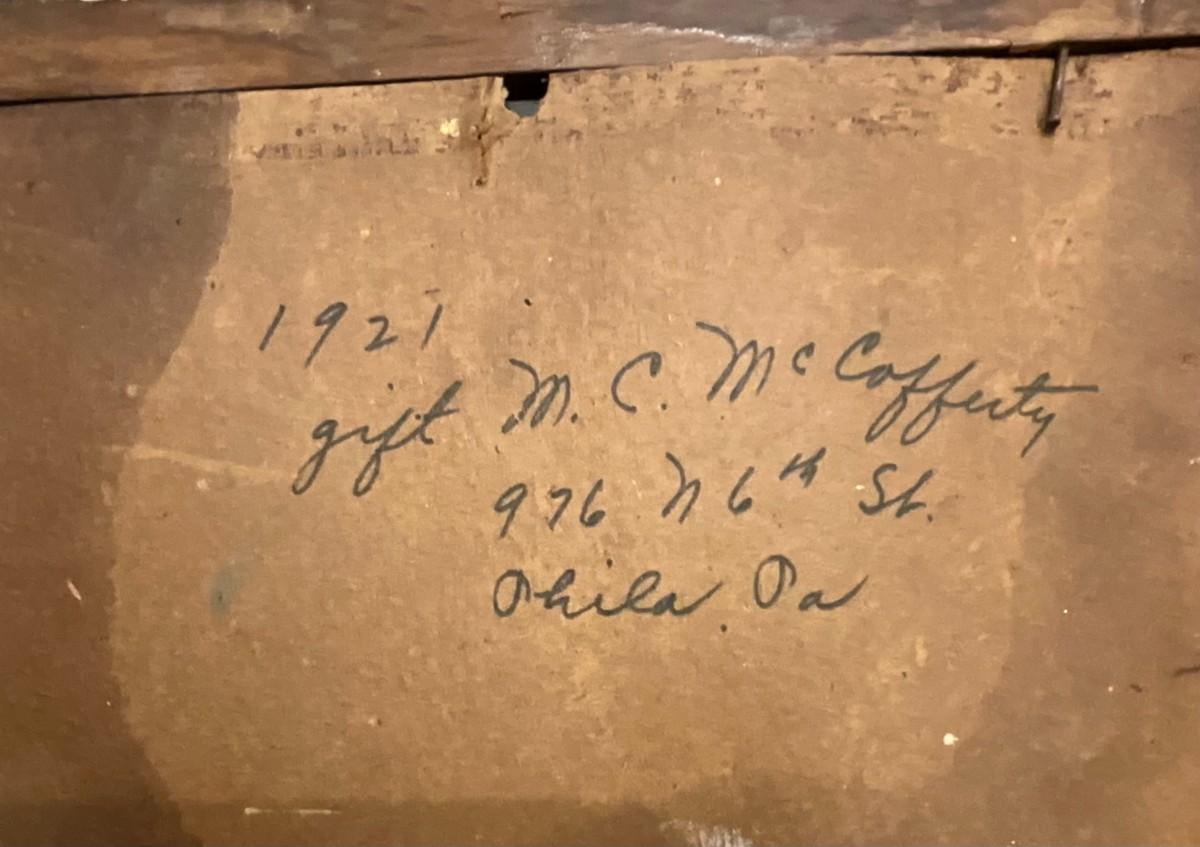 1921
gift M. C. McCafferty
976 N 6th St.
Phila. Pa